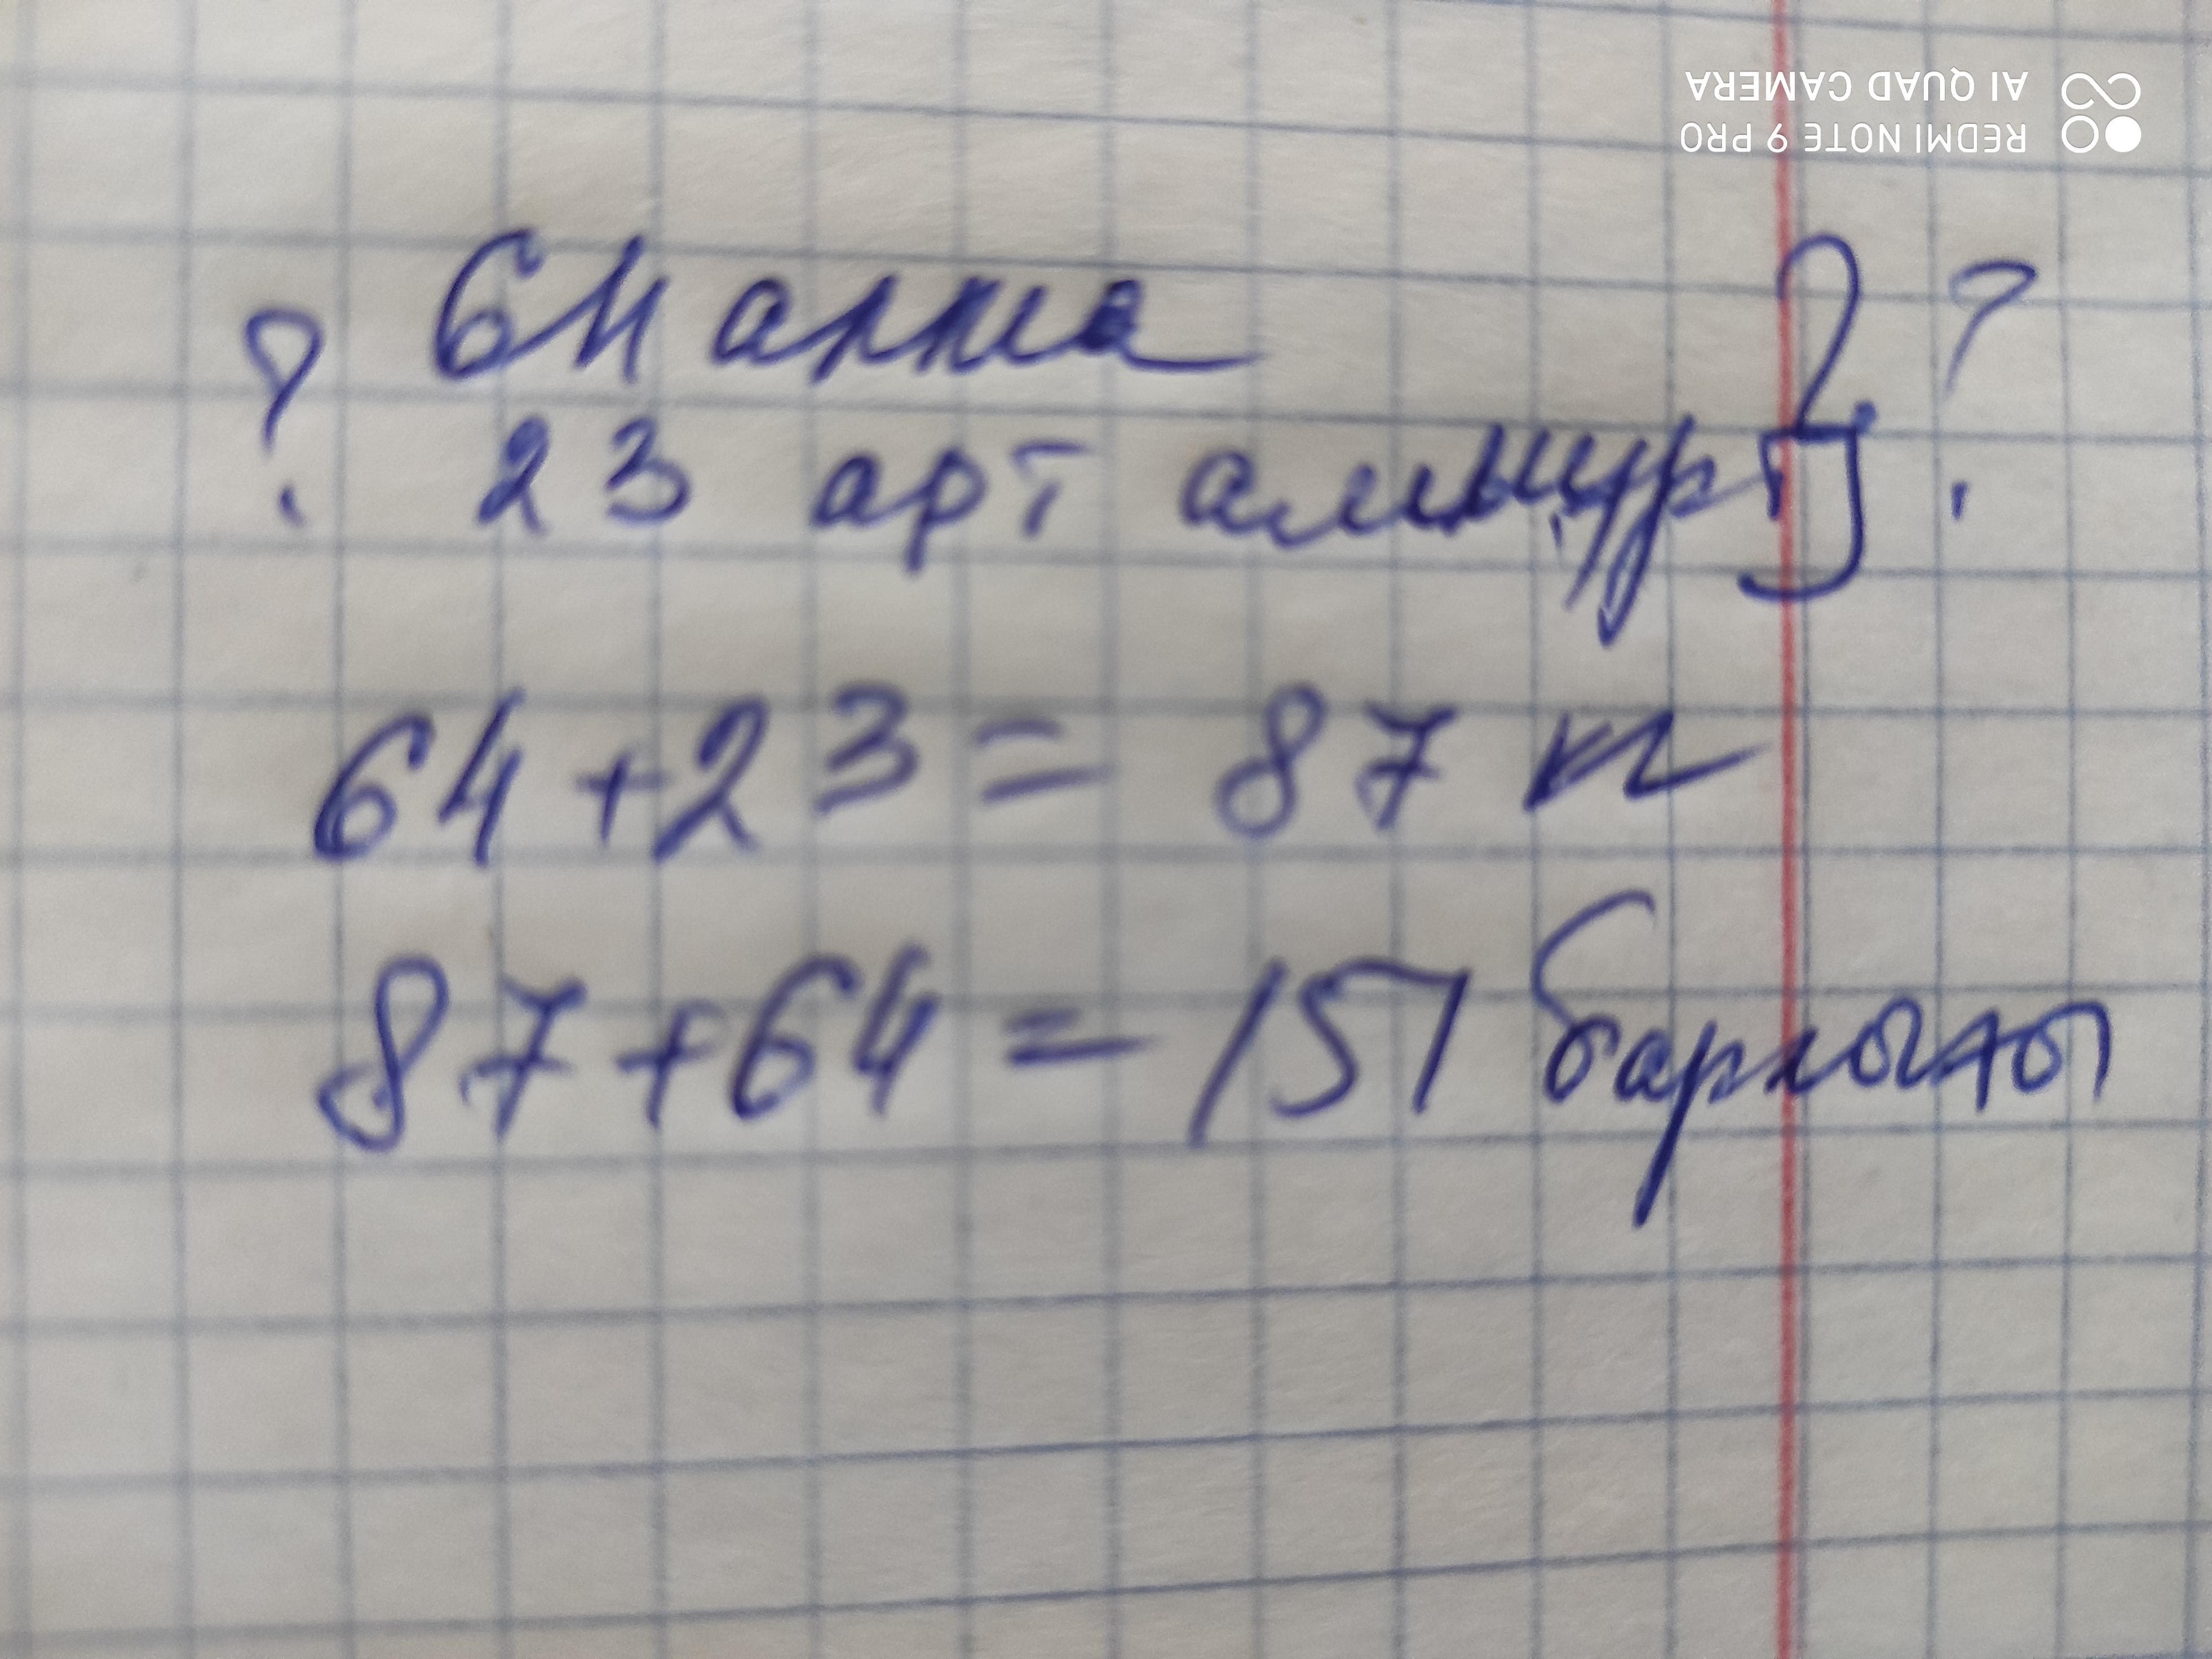 64 алма
? 23 арт алмұрт } ?
64 + 23 = 87 кг
87 + 64 = 151 барлығы
REDMI NOTE 9 PRO
AI QUAD CAMERA